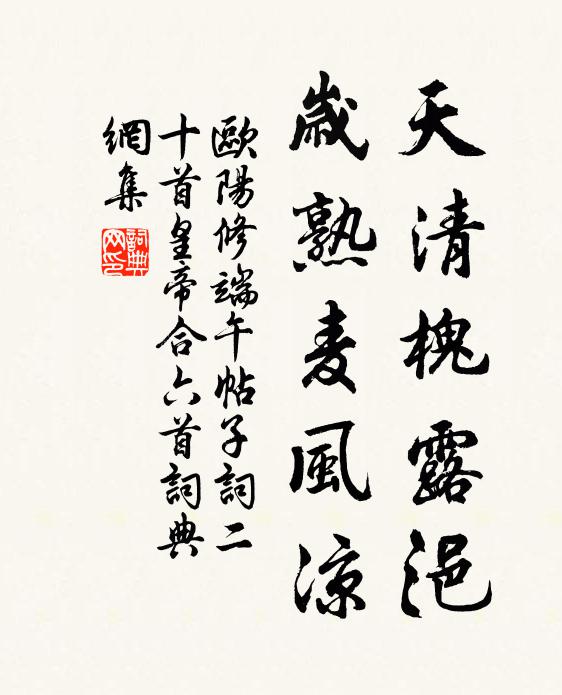 天清槐露浥
歲熟麦風涼
歐陽修端午帖子詞二
十首皇帝合六首詞典
網集
詞典
网印